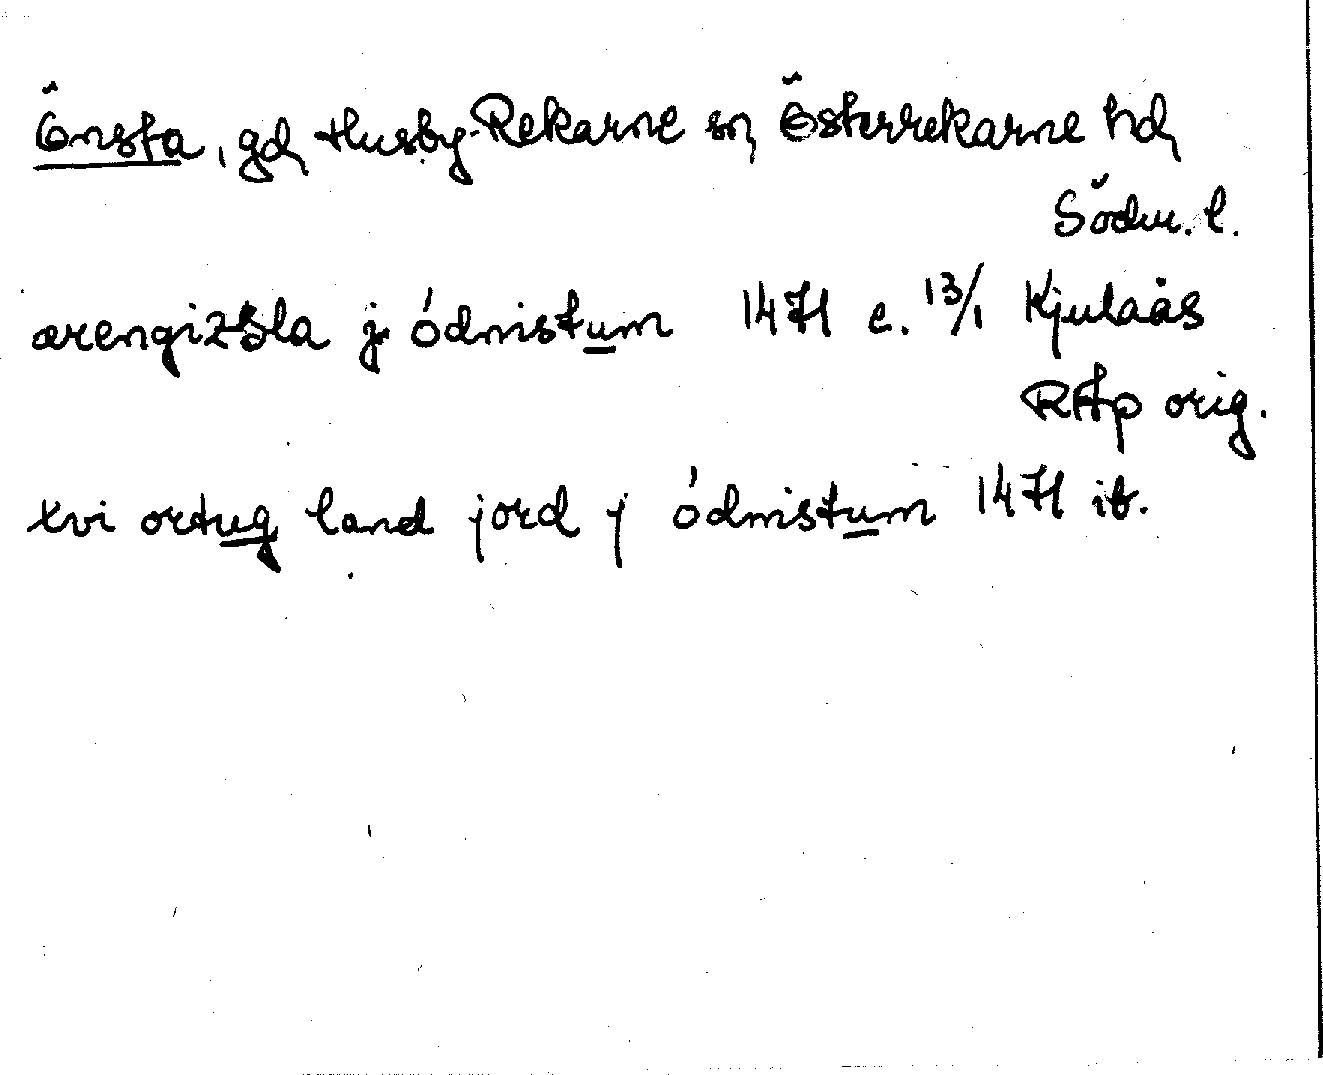 Önsta, gd, Husby-Rekarne sn, Österrekarne hd,
Söderm. l.
ærengizsla j ódinstum 1471 e. 13/1 Kjulaås
RAp orig.
xvi ortug land jord j ódinstum 1471 ib.